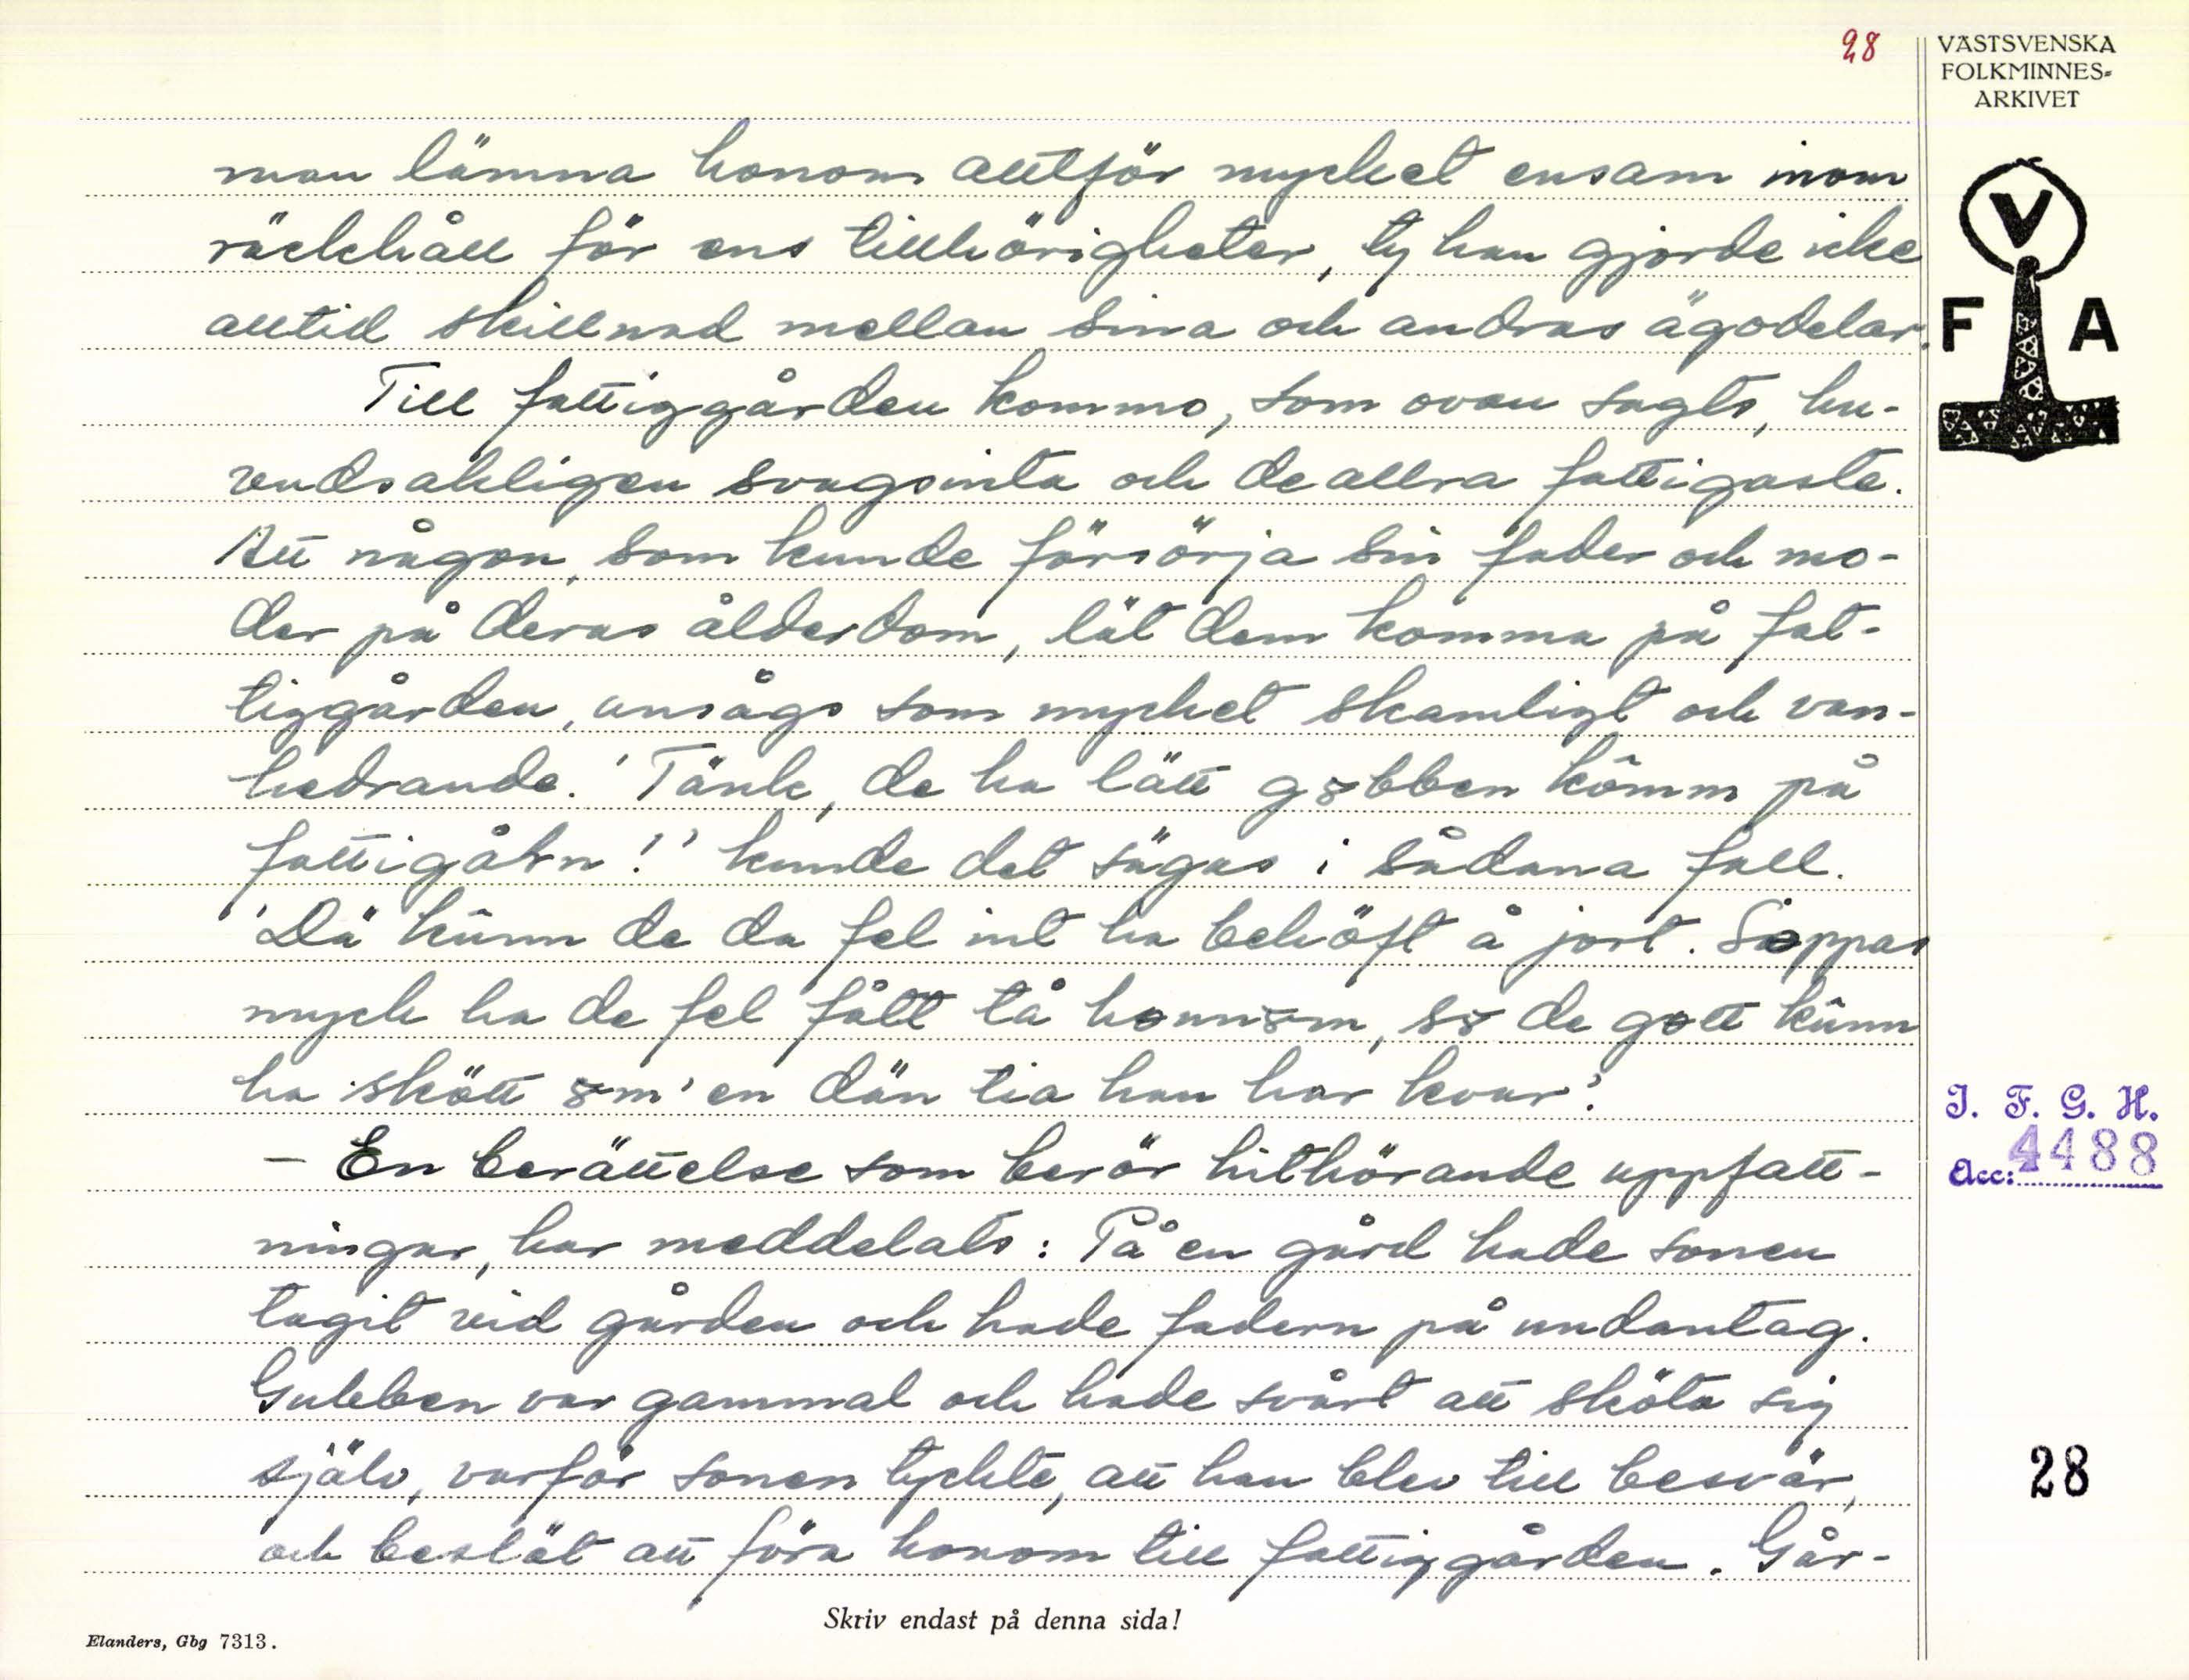 28
VÄSTSVENSKA
FOLKMINNES-
ARKIVET
V
F A
man lämna honom alltför mycket ensam inom
räckhåll för ens tillhörigheter, ty han gjorde icke
alltid skillnad mellan sina och andras ägodelar.
Till fattiggården kommo, som ovan sagts, hu-
vudsakligen svagsinta och de allra fattigaste.
Att någon, som kunde försörja sin fader och mo-
der på deras ålderdom, lät dem komma på fat-
tiggården, ansågs som mycket skamligt och van-
hedrande. 'Tänk, de ha lätt gȣbben kômm på
fattigåln!' kunde det sägas i sådana fall.
'Dä kûnn de da fel int ha behöft å jort. Såppas
mych ha de fel fått tå honnȣm, sȣ de gott kûnn
ha skött ȣm'en dän tia han har kvar.'
– En berättelse som berör hithörande uppfatt-
ningar, har meddelats: På en gård hade sonen
tagit vid gården och hade fadern på undantag.
Gubben var gammal och hade svårt att sköta sig
själv, varför sonen tyckte, att han blev till besvär,
och beslöt att föra honom till fattiggården. Går-
I. F. G. H.
Acc: 4488
28
Skriv endast på denna sida!
Elanders, Gbg 7313.